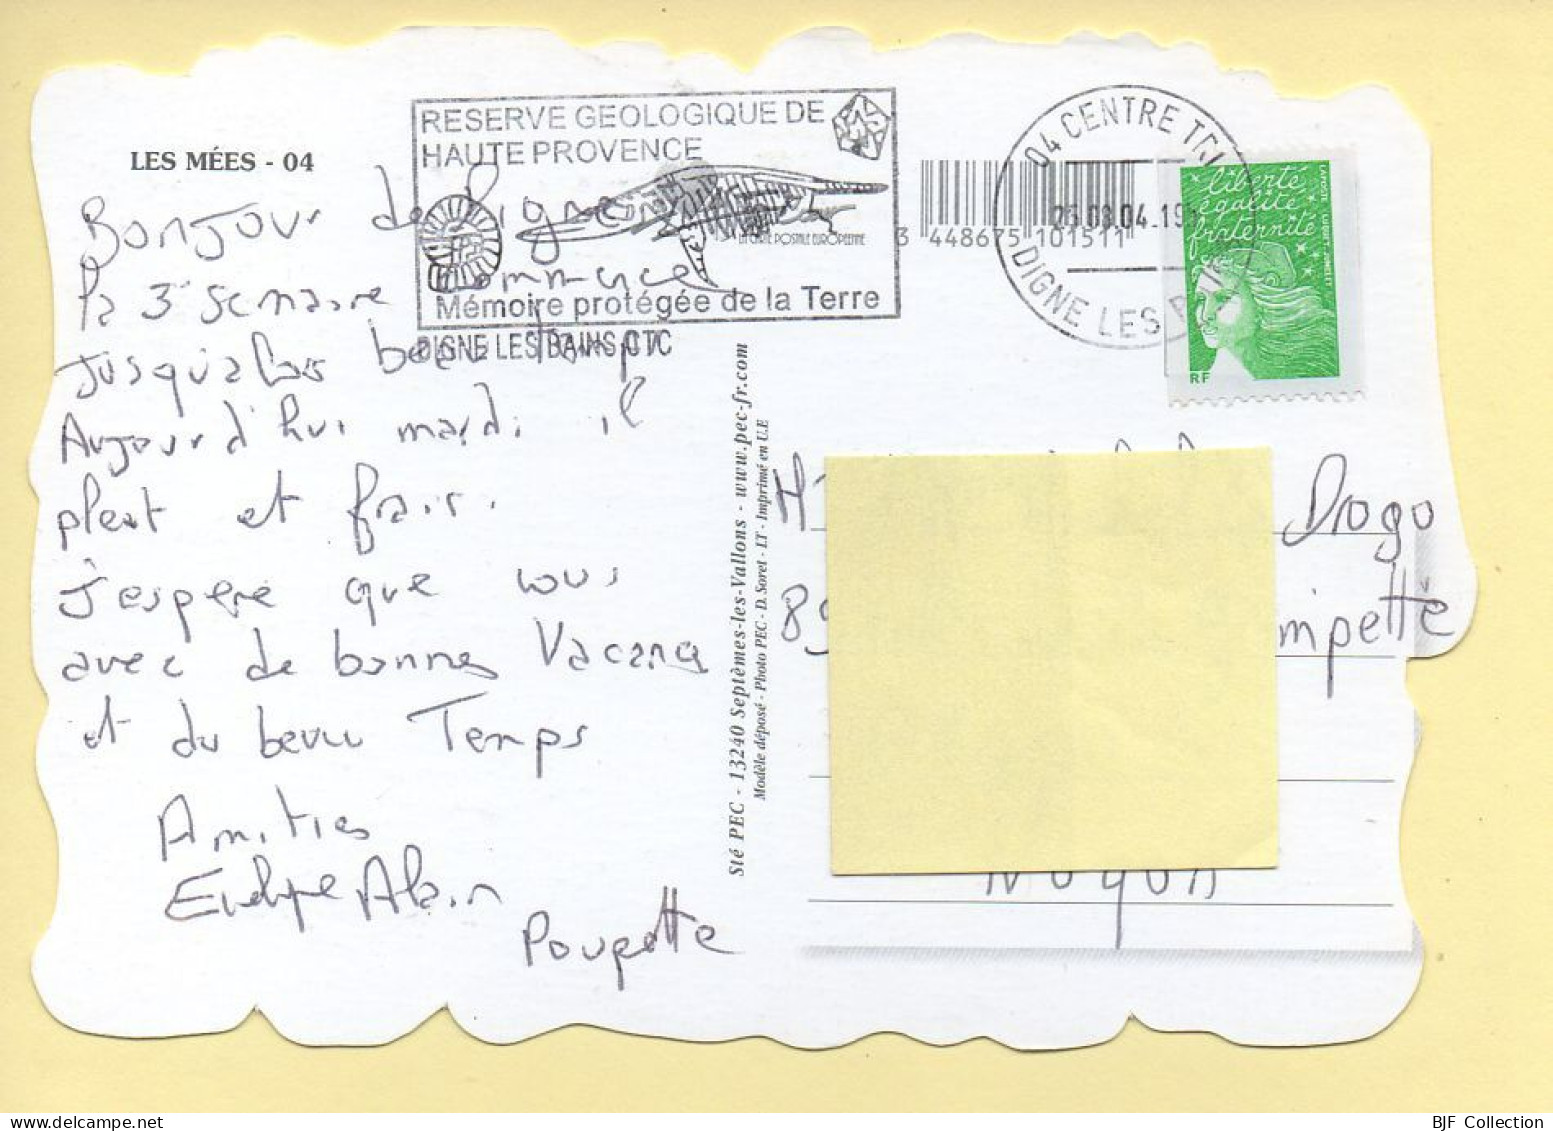 RESERVE GEOLOGIQUE DE
HAUTE PROVENCE
LA CARTE POSTALE EUROPÉENNE
Mémoire protégée de la Terre
DIGNE LES BAINS CTC
3 448675 101511
04 CENTRE TRI
DIGNE LES BAINS
liberté
égalité
fraternité
LA POSTE
RF
LES MÉES - 04
Bonjour de Digne
la 3e semaine commence
jusqu'alors beau temps
Aujourd'hui mardi il
pleut et frais.
j'espere que vous
avec de bonnes Vacances
et du beau Temps
Amities
Evelyne Alain
Poupette
Sté PEC - 13240 Septèmes-les-Vallons - www.pec-fr.com
Modèle déposé - Photo PEC - D. Soret - LT - Imprimé en U.E
Drogo
impette
Noyon
BJF Collection